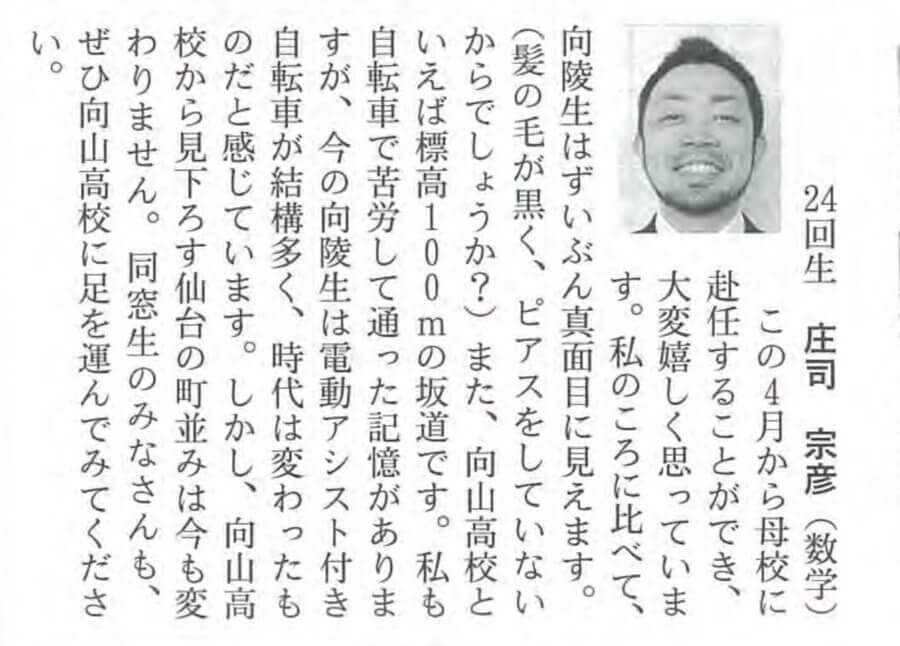 24回生　庄司　宗彦（数学）
この4月から母校に
赴任することができ、
大変嬉しく思っていま
す。私のころに比べて、
向陵生はずいぶん真面目に見えます。
（髪の毛が黒く、ピアスをしていない
からでしょうか？）また、向山高校と
いえば標高100mの坂道です。私も
自転車で苦労して通った記憶がありま
すが、今の向陵生は電動アシスト付き
自転車が結構多く、時代は変わったも
のだと感じています。しかし、向山高
校から見下ろす仙台の町並みは今も変
わりません。同窓生のみなさんも、
ぜひ向山高校に足を運んでみてくださ
い。